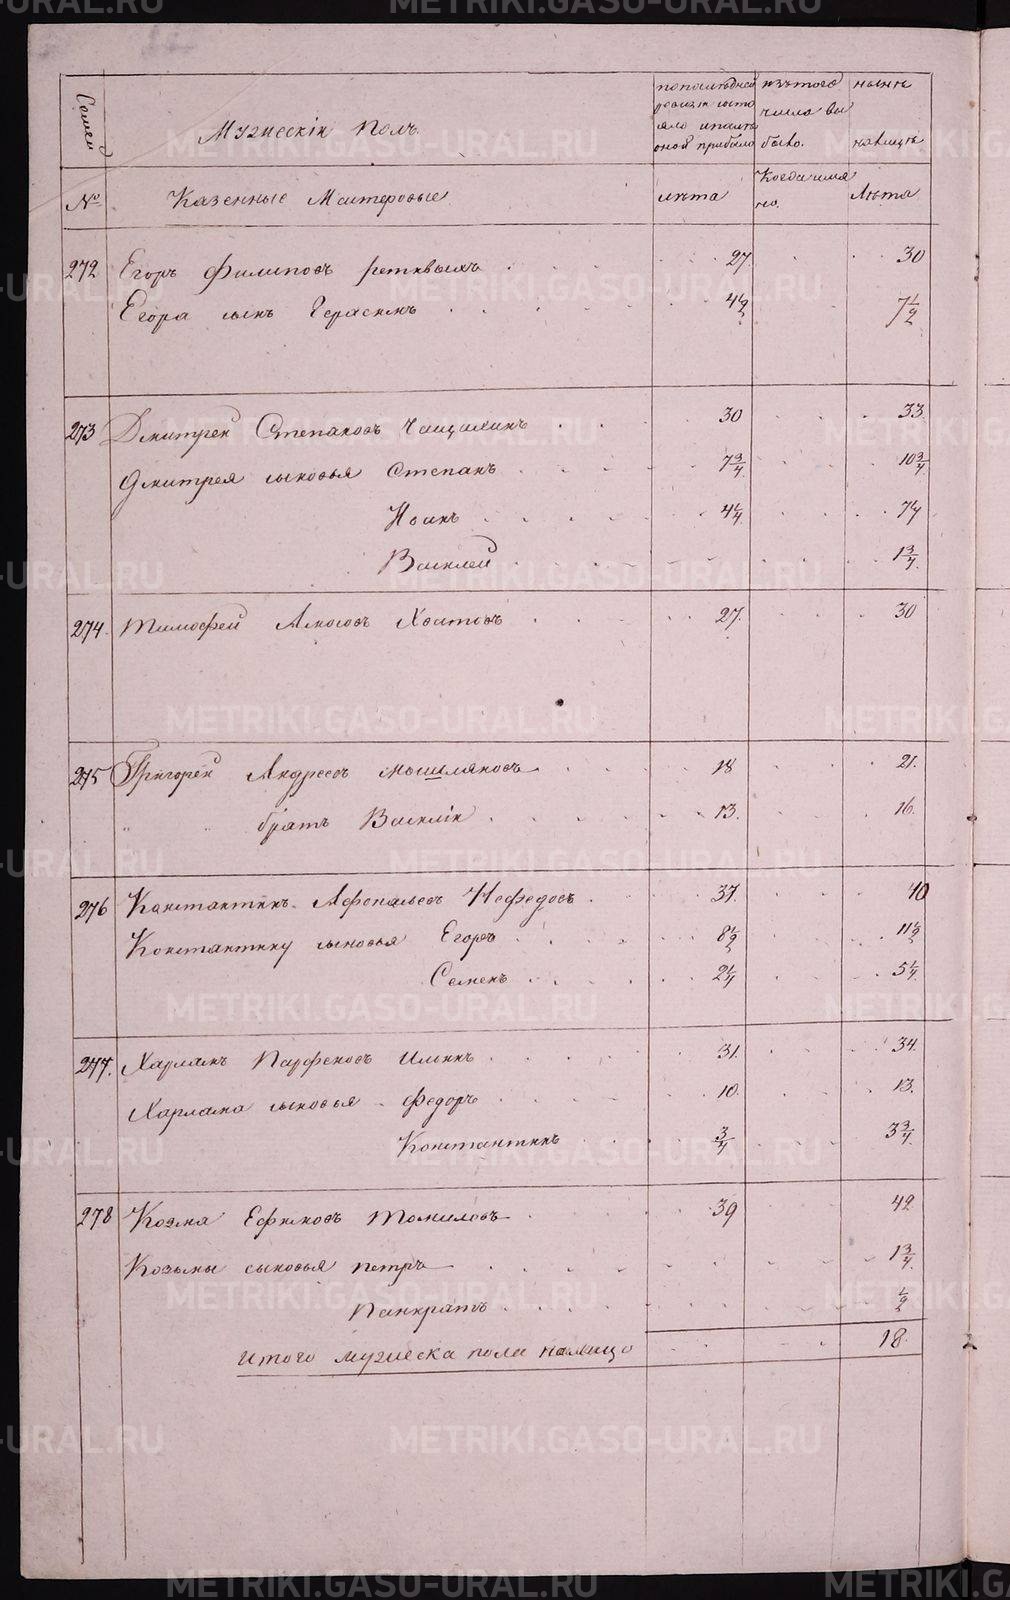 Семей
Мужескiй Полъ
по последней ревизiи состояло и после оной прибыло
изъ того числа выбыло.
ныне налицо
№
Казенные Мастеровые
лета
Когда имянно.
Лета
272 Егоръ Филиповъ 27. 30
Егора сынъ Герасимъ 4½ 7½
273 Дмитрей Степановъ Чащихинъ 30 33
Дмитрея сыновья Степанъ 7¾ 10¾
4¼ 7¼
Василей 1¾
274. Тимофей Хватовъ 27. 30
275 Григорей Андреевъ 18 21.
братъ Василiй 13. 16.
276 Канстантинъ Афонасьевъ Нефедовъ 37. 40
Константину сыновья Егоръ 8½ 11½
Семенъ 2¼ 5¼
277. Харламъ Парфеновъ Ильинъ 31. 34.
Харлама сыновья Федоръ 10. 13.
Константинъ ¾ 3¾
278 Козма Ефимовъ Томиловъ 39 42
Козьмы сыновья Петръ 1¾
Панкратъ ½
Итого мужеска пола налицо 18.
METRIKI.GASO-URAL.RU